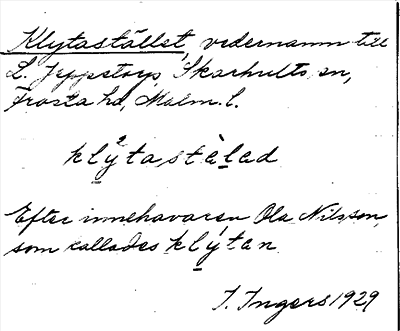 Klytastället, vedernamn till
L. Jeppstorp, Skarhults sn,
Frosta hd, Malm. l.
klýtastȧ̀lad
Efter innehavaren Ola Nilsson,
som kallades klýtan
I. Ingers 1929